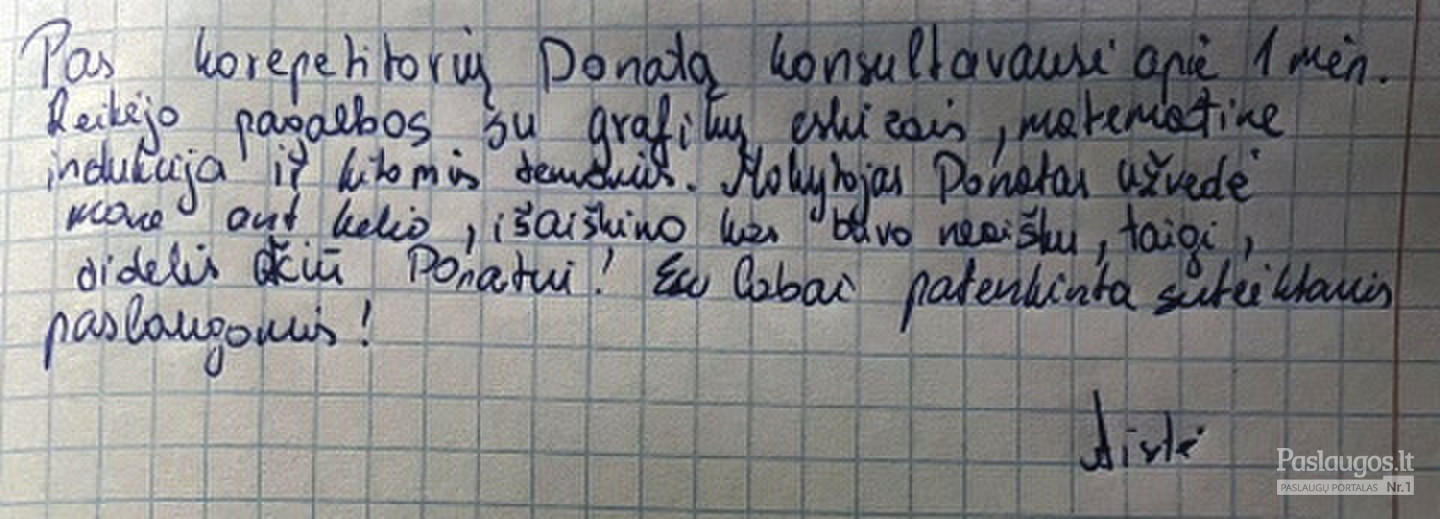 Pas korepetitorių Donatą konsultavausi apie 1 mėn.
Reikėjo pagalbos su grafikų eskizais, matematine
indukcija ir kitomis temomis. Mokytojas Donatas užvedė
mane ant kelio, išaiškino kas buvo neaišku, taigi,
didelis ačiū Donatui! Esu labai patenkinta suteiktomis
paslaugomis!
Paslaugos.lt
PASLAUGŲ PORTALAS Nr.1